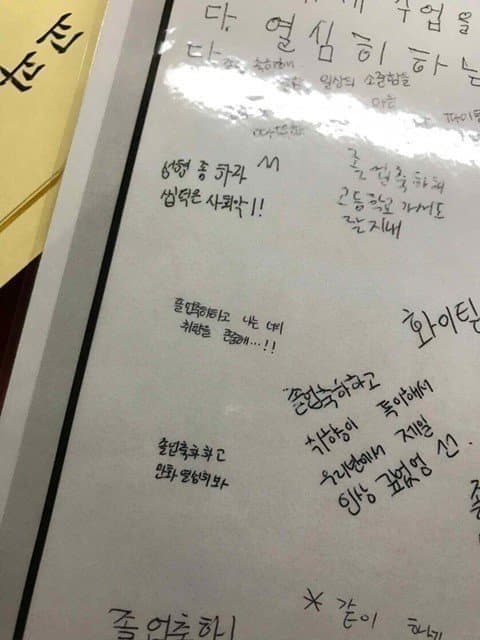 수업을
다. 열심히 하는
다
축하해
일상의 소중함을
졸업 축하해
고등학교 가서도
잘지내
성형 좀 하자
씹덕은 사회악!!
졸업축하하고 나는 너의
취향을 존중해...!!
화이팅
졸업축하하고
취향이 독이해서
우리반에서 제일
인상 깊었엉
졸업축하하고
만화 열심히봐
* 같이 하게
졸업축하!